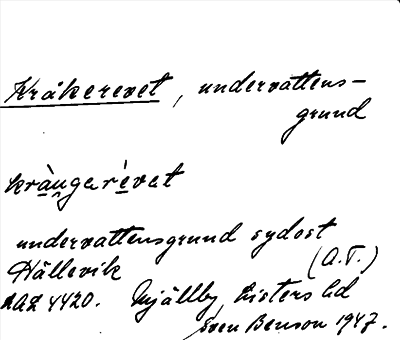 Kråkerevet, undervattens-
grund
kràu̯garévat
undervattensgrund sydost
Hällevik (A.T.)
LAL 4420. Mjällby, Listers hd
Sven Benson 1947.